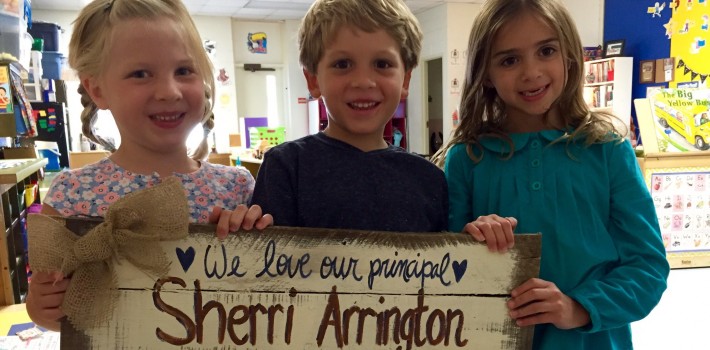 The Big
Yellow Bus
We love our principal
Sherri Arrington